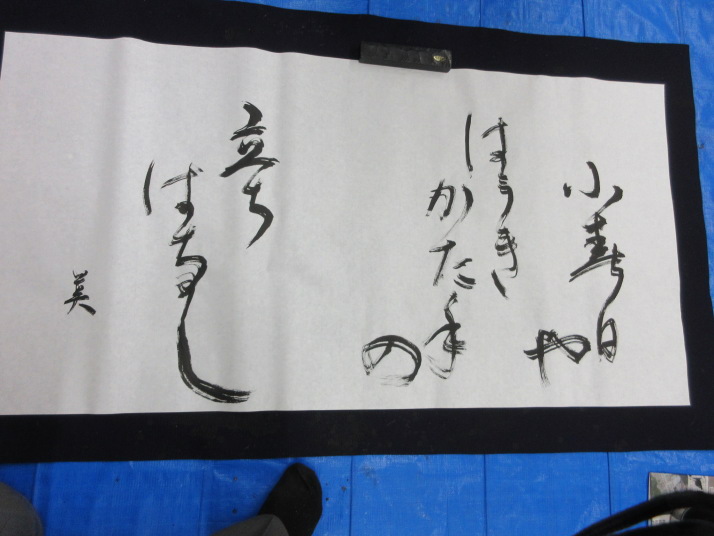 小春日
や
はうき
かた手
の
立ち
ばなし
美